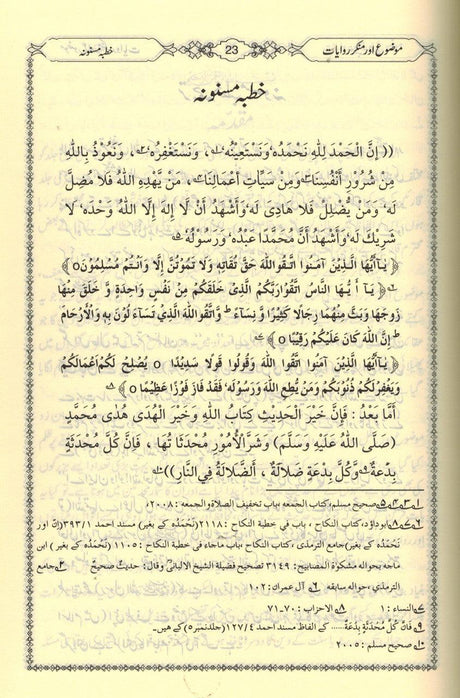 موضوع اور منکر روایات 23 خطبہ مسنونہ
خطبہ مسنونہ
(( إِنَّ الْحَمْدَ لِلّٰهِ نَحْمَدُهٗ وَنَسْتَعِيْنُهٗ، وَنَسْتَغْفِرُهٗ، وَنَعُوْذُ بِاللّٰهِ
مِنْ شُرُوْرِ أَنْفُسِنَا وَمِنْ سَيِّاٰتِ أَعْمَالِنَا، مَنْ يَّهْدِهِ اللّٰهُ فَلَا مُضِلَّ
لَهٗ وَمَنْ يُّضْلِلْ فَلَا هَادِیَ لَهٗ وَأَشْهَدُ أَنْ لَّا إِلٰهَ إِلَّا اللّٰهُ وَحْدَهٗ لَا
شَرِيْكَ لَهٗ وَأَشْهَدُ أَنَّ مُحَمَّدًا عَبْدُهٗ وَرَسُوْلُهٗ
﴿ يٰٓاَيُّهَا الَّذِيْنَ اٰمَنُوا اتَّقُوا اللّٰهَ حَقَّ تُقَاتِهٖ وَلَا تَمُوْتُنَّ اِلَّا وَاَنْتُمْ مُّسْلِمُوْنَ ○﴾
﴿ يٰٓاَيُّهَا النَّاسُ اتَّقُوْا رَبَّكُمُ الَّذِیْ خَلَقَكُمْ مِّنْ نَّفْسٍ وَّاحِدَةٍ وَّ خَلَقَ مِنْهَا
زَوْجَهَا وَبَثَّ مِنْهُمَا رِجَالًا كَثِيْرًا وَّ نِسَآءً ط وَاتَّقُوا اللّٰهَ الَّذِیْ تَسَآءَلُوْنَ بِهٖ وَالْاَرْحَامَ
ط اِنَّ اللّٰهَ كَانَ عَلَيْكُمْ رَقِيْبًا ○﴾
﴿ يٰٓاَيُّهَا الَّذِيْنَ اٰمَنُوا اتَّقُوا اللّٰهَ وَقُوْلُوْا قَوْلًا سَدِيْدًا ○ يُّصْلِحْ لَكُمْ اَعْمَالَكُمْ
وَيَغْفِرْلَكُمْ ذُنُوْبَكُمْ وَمَنْ يُّطِعِ اللّٰهَ وَرَسُوْلَهٗ فَقَدْ فَازَ فَوْزًا عَظِيْمًا ○﴾
أَمَّا بَعْدُ : فَإِنَّ خَيْرَ الْحَدِيْثِ كِتَابُ اللّٰهِ وَخَيْرَ الْهُدٰی هُدٰی مُحَمَّدٍ
(صَلَّی اللّٰهُ عَلَيْهِ وَسَلَّمَ) وَشَرَّ الْأُمُوْرِ مُحْدَثَاتُهَا ، فَإِنَّ كُلَّ مُحْدَثَةٍ
بِدْعَةٌ وَّكُلَّ بِدْعَةٍ ضَلَالَةٌ ، اَلضَّلَالَةُ فِی النَّارِ))
۱، ۳، ۴، ۵ صحیح مسلم، کتاب الجمعہ، باب تخفیف الصلاۃ والجمعہ : ۲۰۰۸
ابوداؤد، کتاب النکاح ، باب فی خطبۃ النکاح : ۲۱۱۸ (نَحْمَدُہٗ کے بغیر) مسند احمد ۳۹۳/۱ (اِنَّ اور
نَحْمَدُہٗ کے بغیر) جامع الترمذی، کتاب النکاح ، باب ماجاء فی خطبۃ النکاح : ۱۱۰۵ (نَحْمَدُہٗ کے بغیر) ابن
ماجہ بحوالہ مشکوۃ المصابیح : ۳۱۴۹ تصحیح فضیلۃ الشیخ الالبانی وقال: حدیث صحیح جامع
الترمذی، حوالہ سابقہ۔ ۶ آل عمران : ۱۰۲
۷ النساء : ۱ ۸ الاحزاب : ۷۰-۷۱
۹ فَاِنَّ كُلَّ مُحْدَثَةٍ بِدْعَةٌ ...... کے الفاظ مسند احمد : ۱۲۷/۴ (جلد نمبر ۵) کے ہیں۔
۱۰ صحیح مسلم : ۲۰۰۵